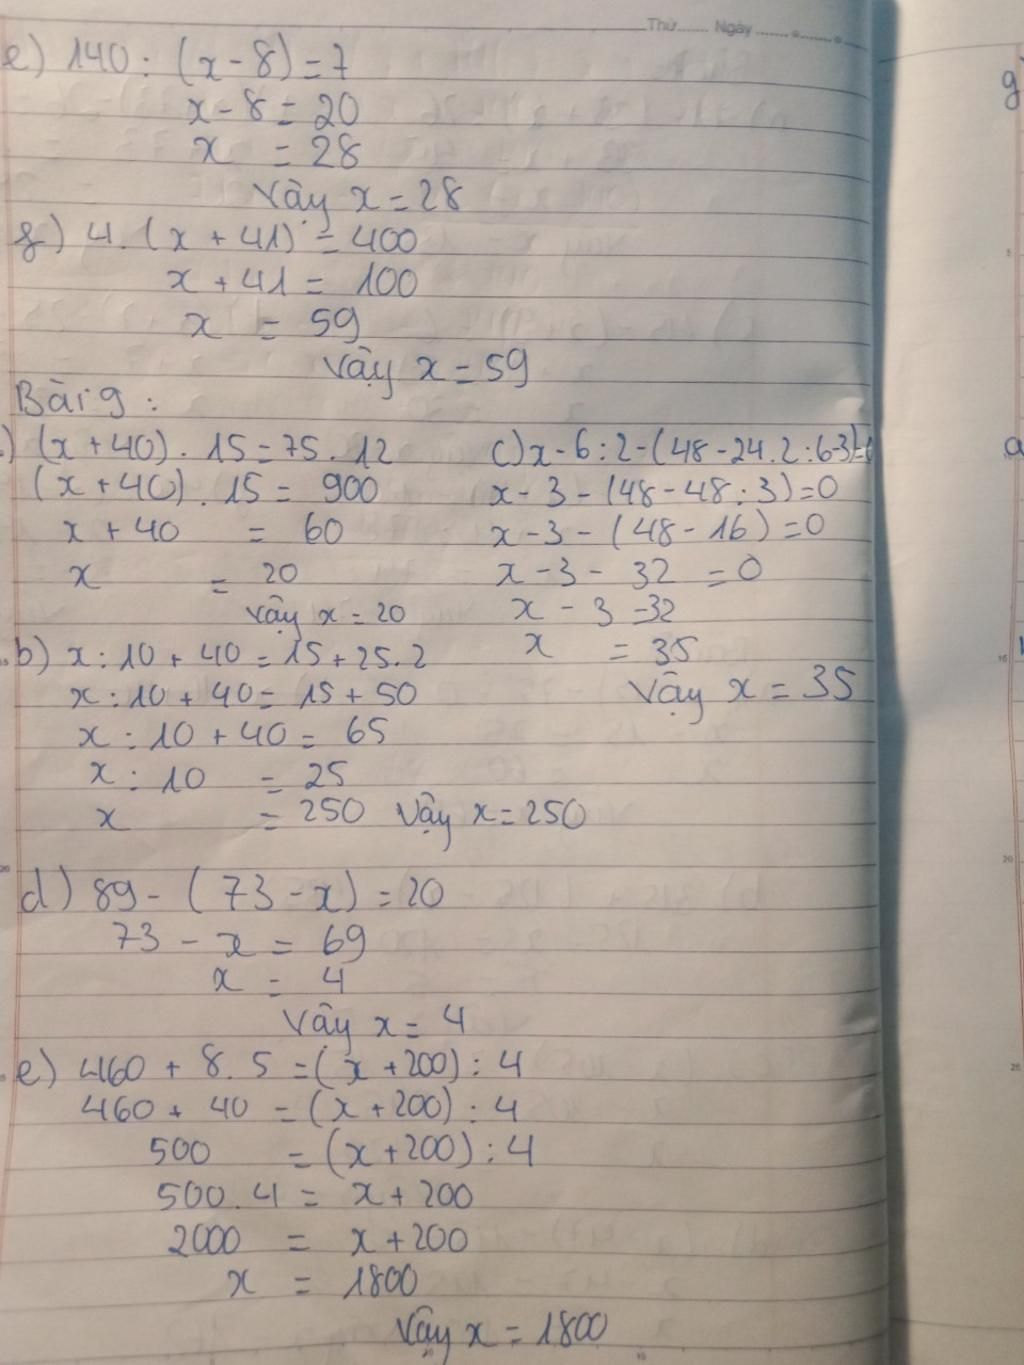 Thứ....... Ngày.......
e) 140 : (x - 8) = 7
x - 8 = 20
x = 28
Vậy x = 28
g) 4. (x + 41) = 400
x + 41 = 100
x = 59
Vậy x = 59
Bài 9 :
) (x + 40) . 15 = 75 . 12
(x + 40) . 15 = 900
x + 40 = 60
x = 20
Vậy x = 20
b) x : 10 + 40 = 15 + 25. 2
x : 10 + 40 = 15 + 50
x : 10 + 40 = 65
x : 10 = 25
x = 250 Vậy x = 250
c) x - 6 : 2 - (48 - 24. 2 : 6-3) = 0
x - 3 - (48 - 48 : 3) = 0
x - 3 - (48 - 16) = 0
x - 3 - 32 = 0
x - 3 = 32
x = 35
Vậy x = 35
d) 89 - (73 - x) = 20
73 - x = 69
x = 4
Vậy x = 4
e) 460 + 8. 5 = (x + 200) : 4
460 + 40 = (x + 200) : 4
500 = (x + 200) : 4
500. 4 = x + 200
2000 = x + 200
x = 1800
Vậy x = 1800
g
a
5
15
20
25